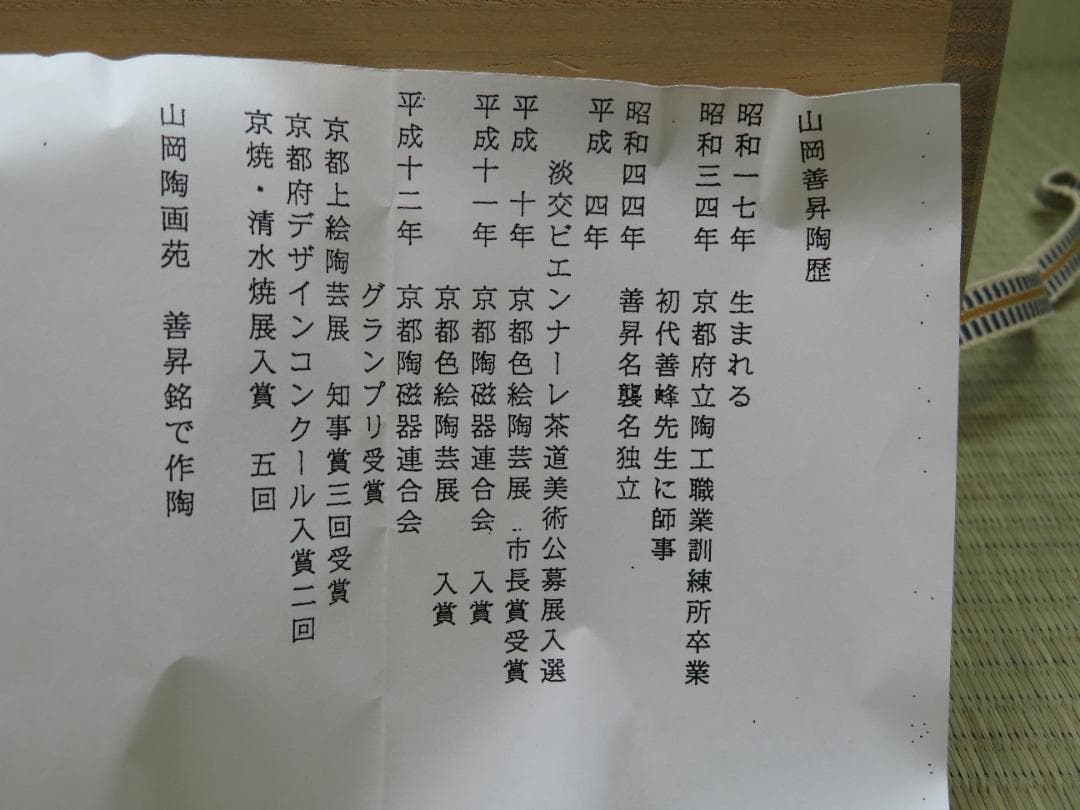 山岡善昇陶歴
昭和一七年 生まれる
昭和三四年 京都府立陶工職業訓練所卒業
初代善峰先生に師事
昭和四四年 善昇名襲名独立
平成 四年
淡交ビエンナーレ茶道美術公募展入選
平成 十年 京都色絵陶芸展 市長賞受賞
平成十一年 京都陶磁器連合会 入賞
京都色絵陶芸展 入賞
平成十二年 京都陶磁器連合会
グランプリ受賞
京都上絵陶芸展 知事賞三回受賞
京都府デザインコンクール入賞二回
京焼・清水焼展入賞 五回
山岡陶画苑 善昇銘で作陶